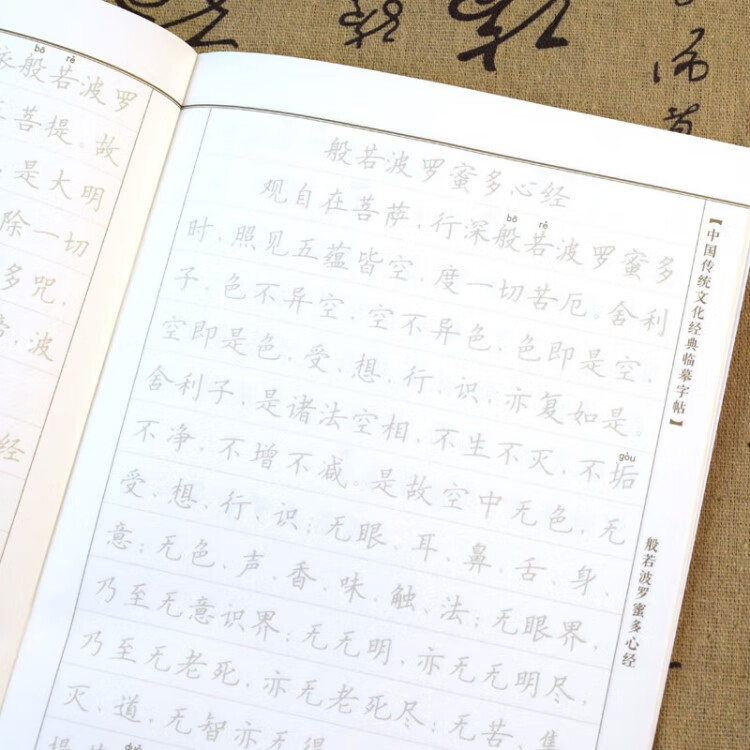 依般若波罗
三菩提。故
是大明
除一切
多咒,
波
经
般若波罗蜜多心经
bō rě
观自在菩萨,行深般若波罗蜜多
时,照见五蕴皆空,度一切苦厄。舍利
子,色不异空,空不异色,色即是空,
空即是色,受、想、行、识,亦复如是。
舍利子,是诸法空相,不生不灭,不垢
gòu
不净、不增不减。是故空中无色,无
受、想、行、识;无眼、耳、鼻、舌、身、
意;无色、声、香、味、触、法;无眼界,
乃至无意识界;无无明,亦无无明尽,
乃至无老死,亦无老死尽;无苦、集、
灭、道,无智亦无得
【中国传统文化经典临摹字帖】
般若波罗蜜多心经